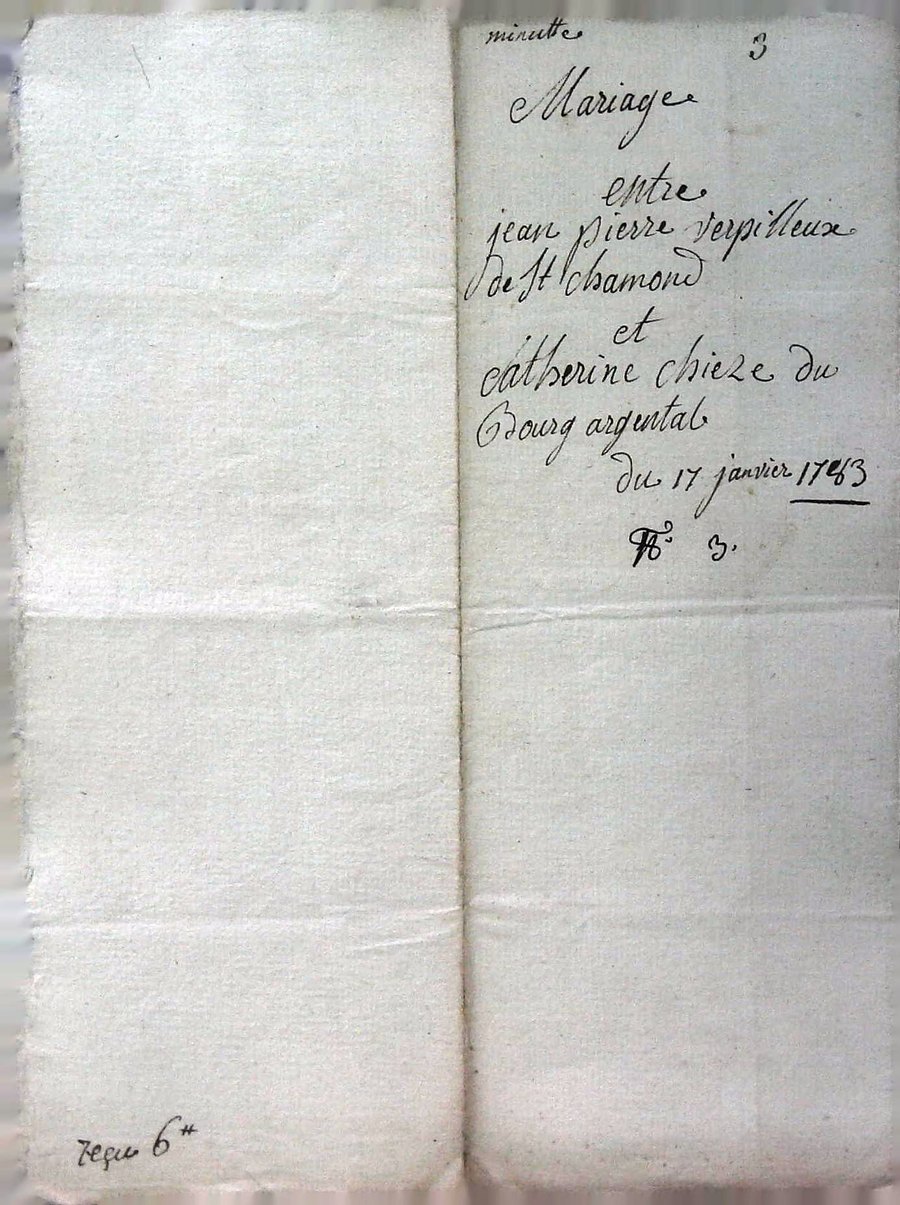 minutte
3
Mariage
entre
jean pierre verpilleux
de St chamond
et
Catherine chieze du
Bourg argental
du 17 janvier 1783
N° 3.
reçu 6#